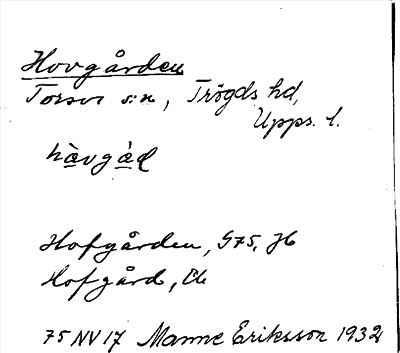 Hovgården
Torsvi s:n, Trögds hd,
Upps. l.
hàvgàɖ
Hofgården, G75, Jb
Hofgård, Ek
75 NV 17 Manne Eriksson 1932